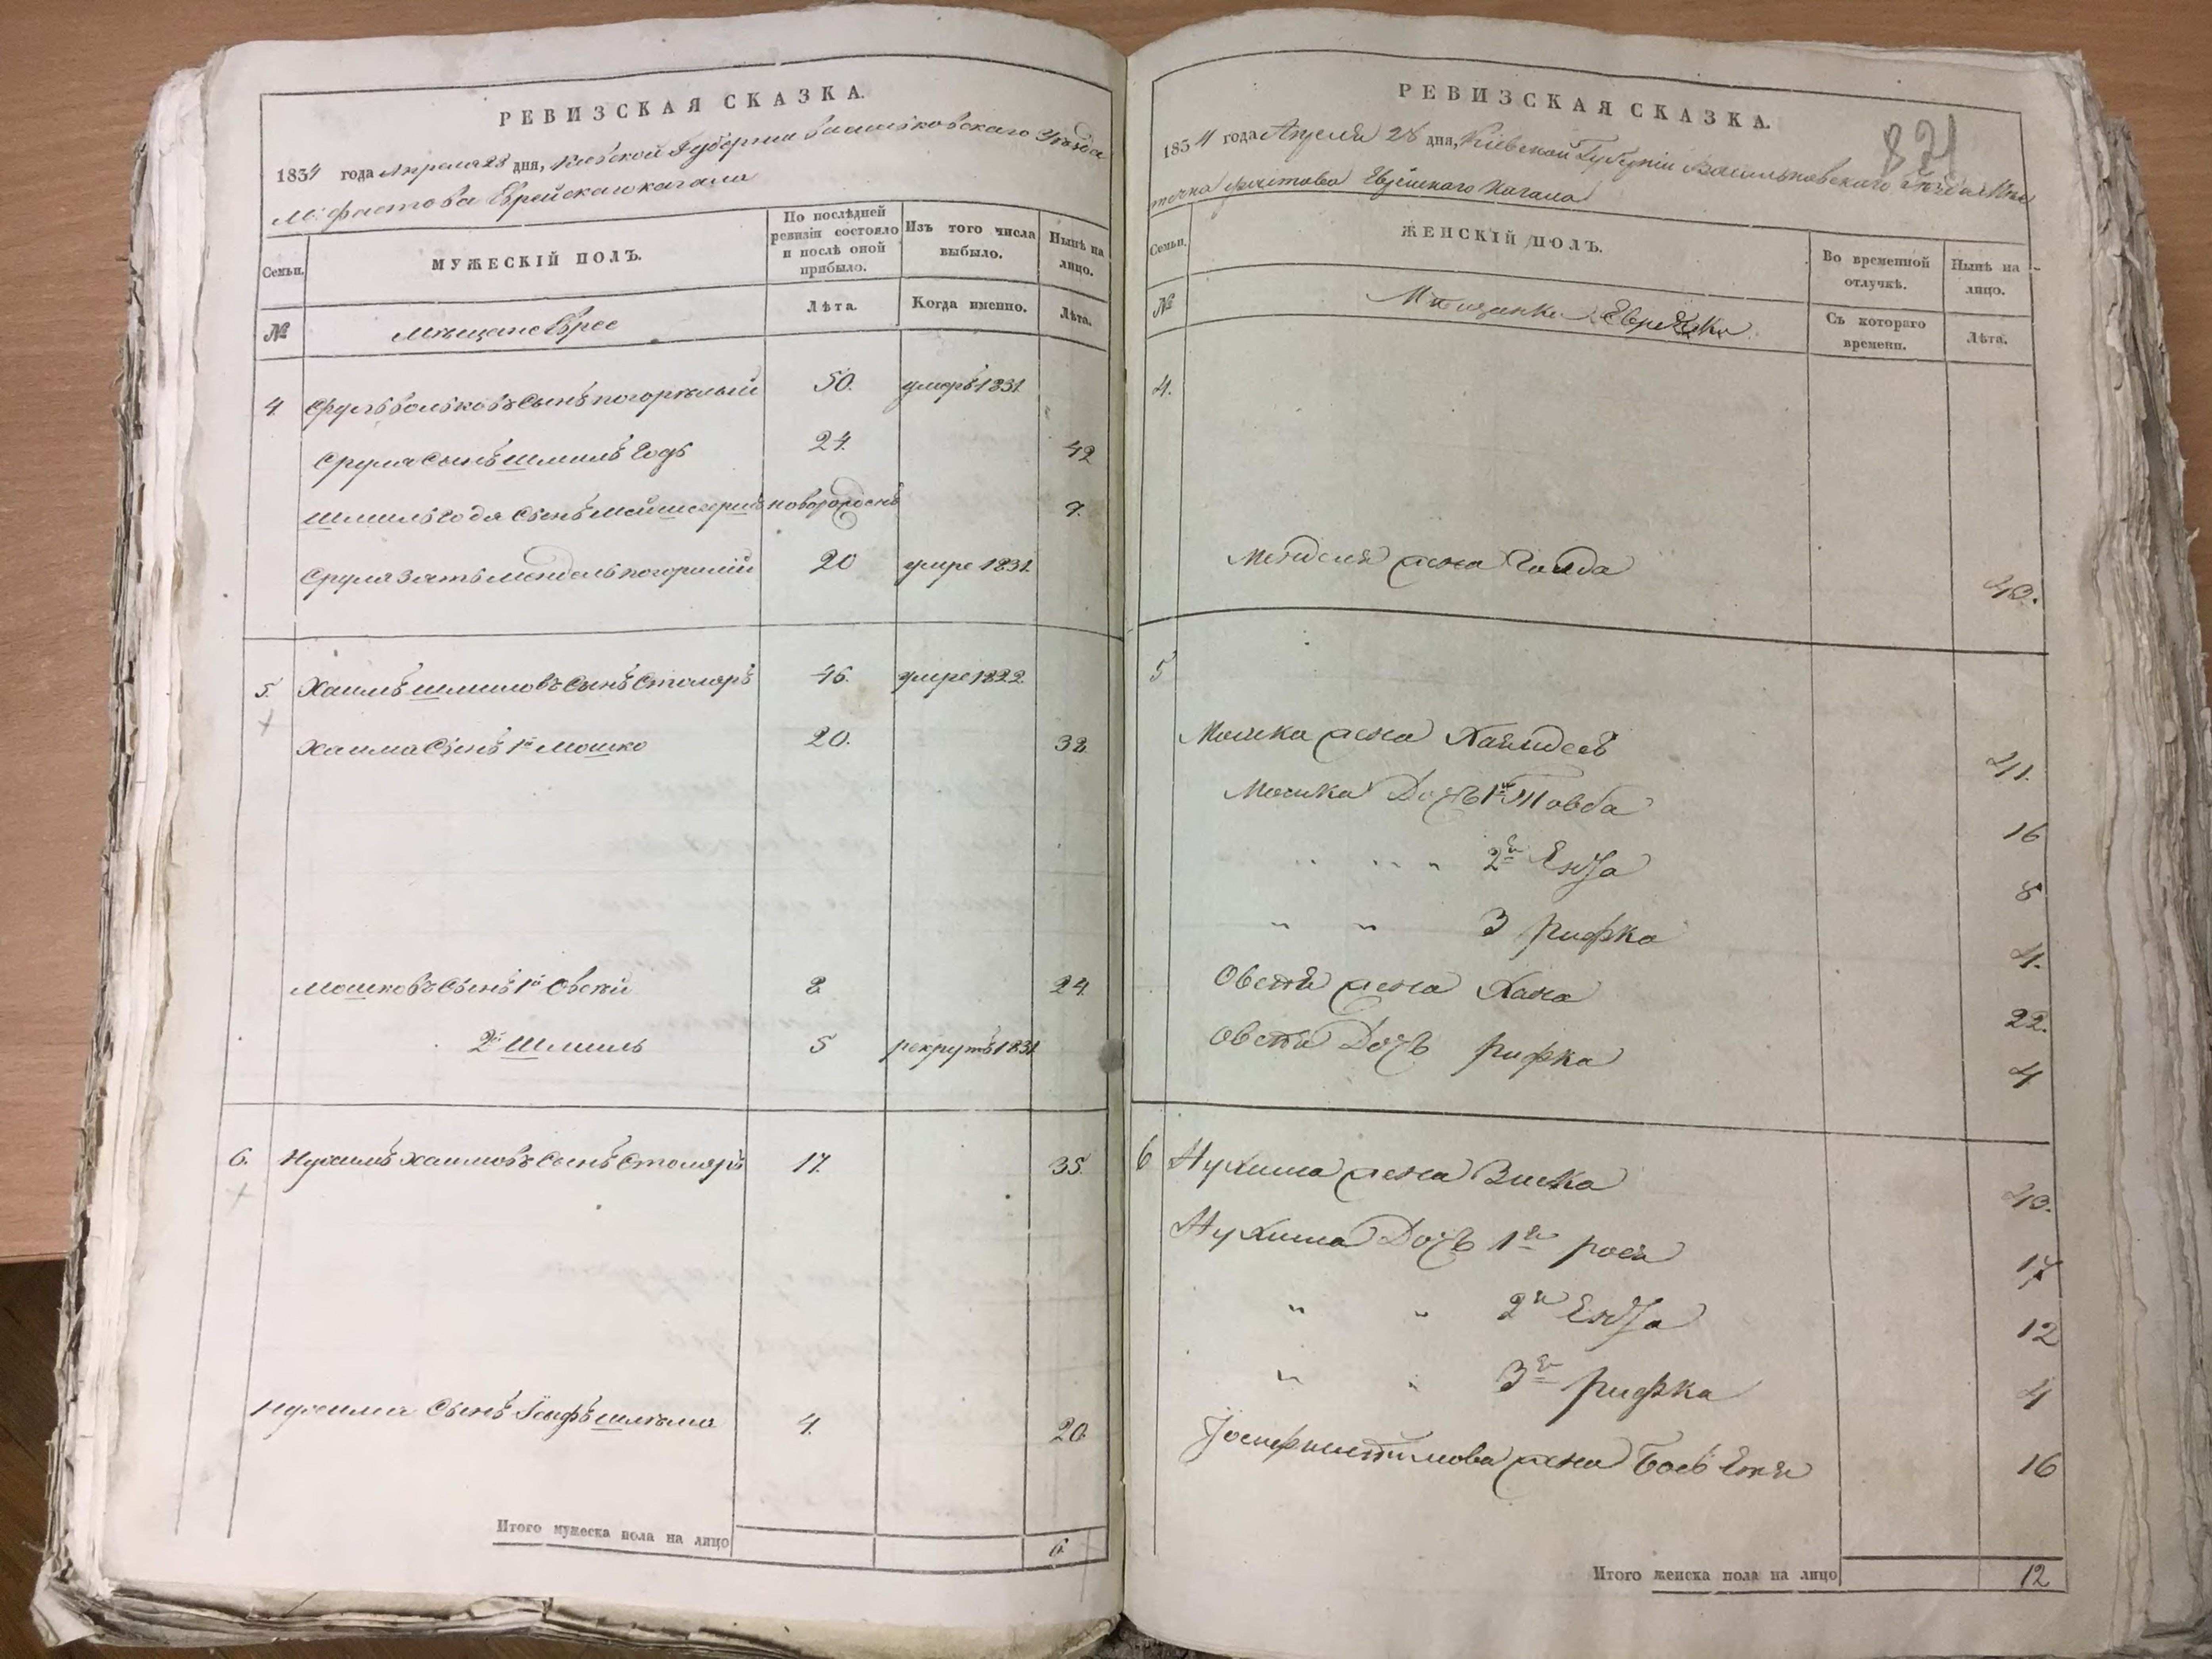 РЕВИЗСКАЯ СКАЗКА.
1834 года Апреля 28 дня, Киевской Губернии Васильковского Уезда
М: Фастова Еврейского кагала
Семьи.
МУЖЕСКІЙ ПОЛЪ.
По послѣдней ревизіи состояло и послѣ оной прибыло.
Изъ того числа выбыло.
Нынѣ на лицо.
№
Мещане Евреи
Лѣта.
Когда именно.
Лѣта.
4. Сруль Вольковъ сынъ Погорелый 50. умеръ 1831.
Сруля сынъ Шмиль 24. 42
новорожденъ 9.
Сруля зять Мендель 20 умре 1831.
5. Хаимъ Шмиловъ сынъ Столяръ 46. умре 1822.
Хаима сынъ 1й Мошко 20. 38.
Мошковъ сынъ 1й Овсей 8. 24.
2й Шмиль 5 рекрутъ 1831.
6. Нухимъ Хаимовъ сынъ Столяръ 17. 35.
Нухима сынъ 4. 20.
Итого мужеска пола на лицо 6.
РЕВИЗСКАЯ СКАЗКА.
821
1834 года Апреля 28 дня, Кіевской Губерніи Васильковского Уезда Мес
течка Фастова Еврейского Кагала
Семьи.
ЖЕНСКІЙ ПОЛЪ.
Во временной отлучкѣ.
Нынѣ на лицо.
№
Мещанки Еврейки
Съ котораго времени.
Лѣта.
4.
Менделя жена Голда 40.
5
Мошка жена 41.
Мошка Дочь 1я Товба 16
" " " 2я Ента 8
" " 3 Рифка 4.
Овсея жена Хана 22.
Овсея Дочь Рифка 4
6 Нухима жена Виска 40.
Нухима Дочь 1я Рося 17
" " 2я Ента 12
" " 3я Рифка 4
жена 16
Итого женска пола на лицо 12